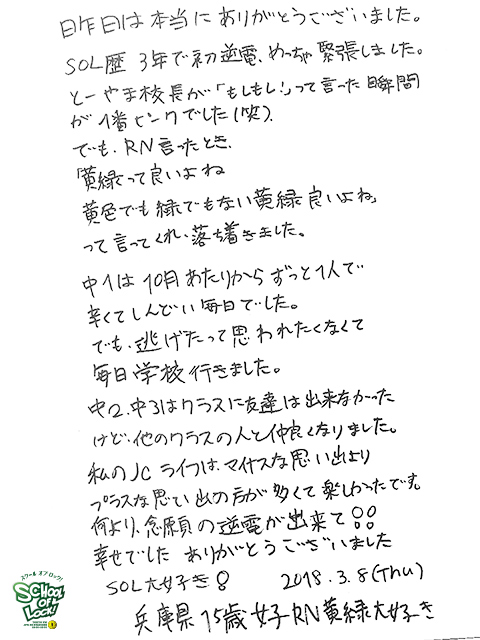 昨日は本当にありがとうございました。
SOL歴 3年で初逆電、めっちゃ緊張しました。
とーやま校長が「もしもし!」って言った瞬間
が1番ピークでした(笑)、
でも、RN言ったとき、
「黄緑って良いよね
黄色でも緑でもない黄緑良いよね」
って言ってくれ、落ち着きました。
中1は10月あたりからずっと1人で
辛くてしんどい毎日でした。
でも、逃げたって思われたくなくて
毎日学校行きました。
中2、中3はクラスに友達は出来なかった
けど、他のクラスの人と仲良くなりました。
私のJCライフは、マイナスな思い出より
プラスな思い出の方が多くて楽しかったです。
何より、念願の逆電が出来て!!
幸せでした ありがとうございました
SOL大好き! 2018.3.8(Thu)
兵庫県 15歳 女子 RN 黄緑大好き
スクール オブ ロック!
SCHOOL
OF
LOCK!